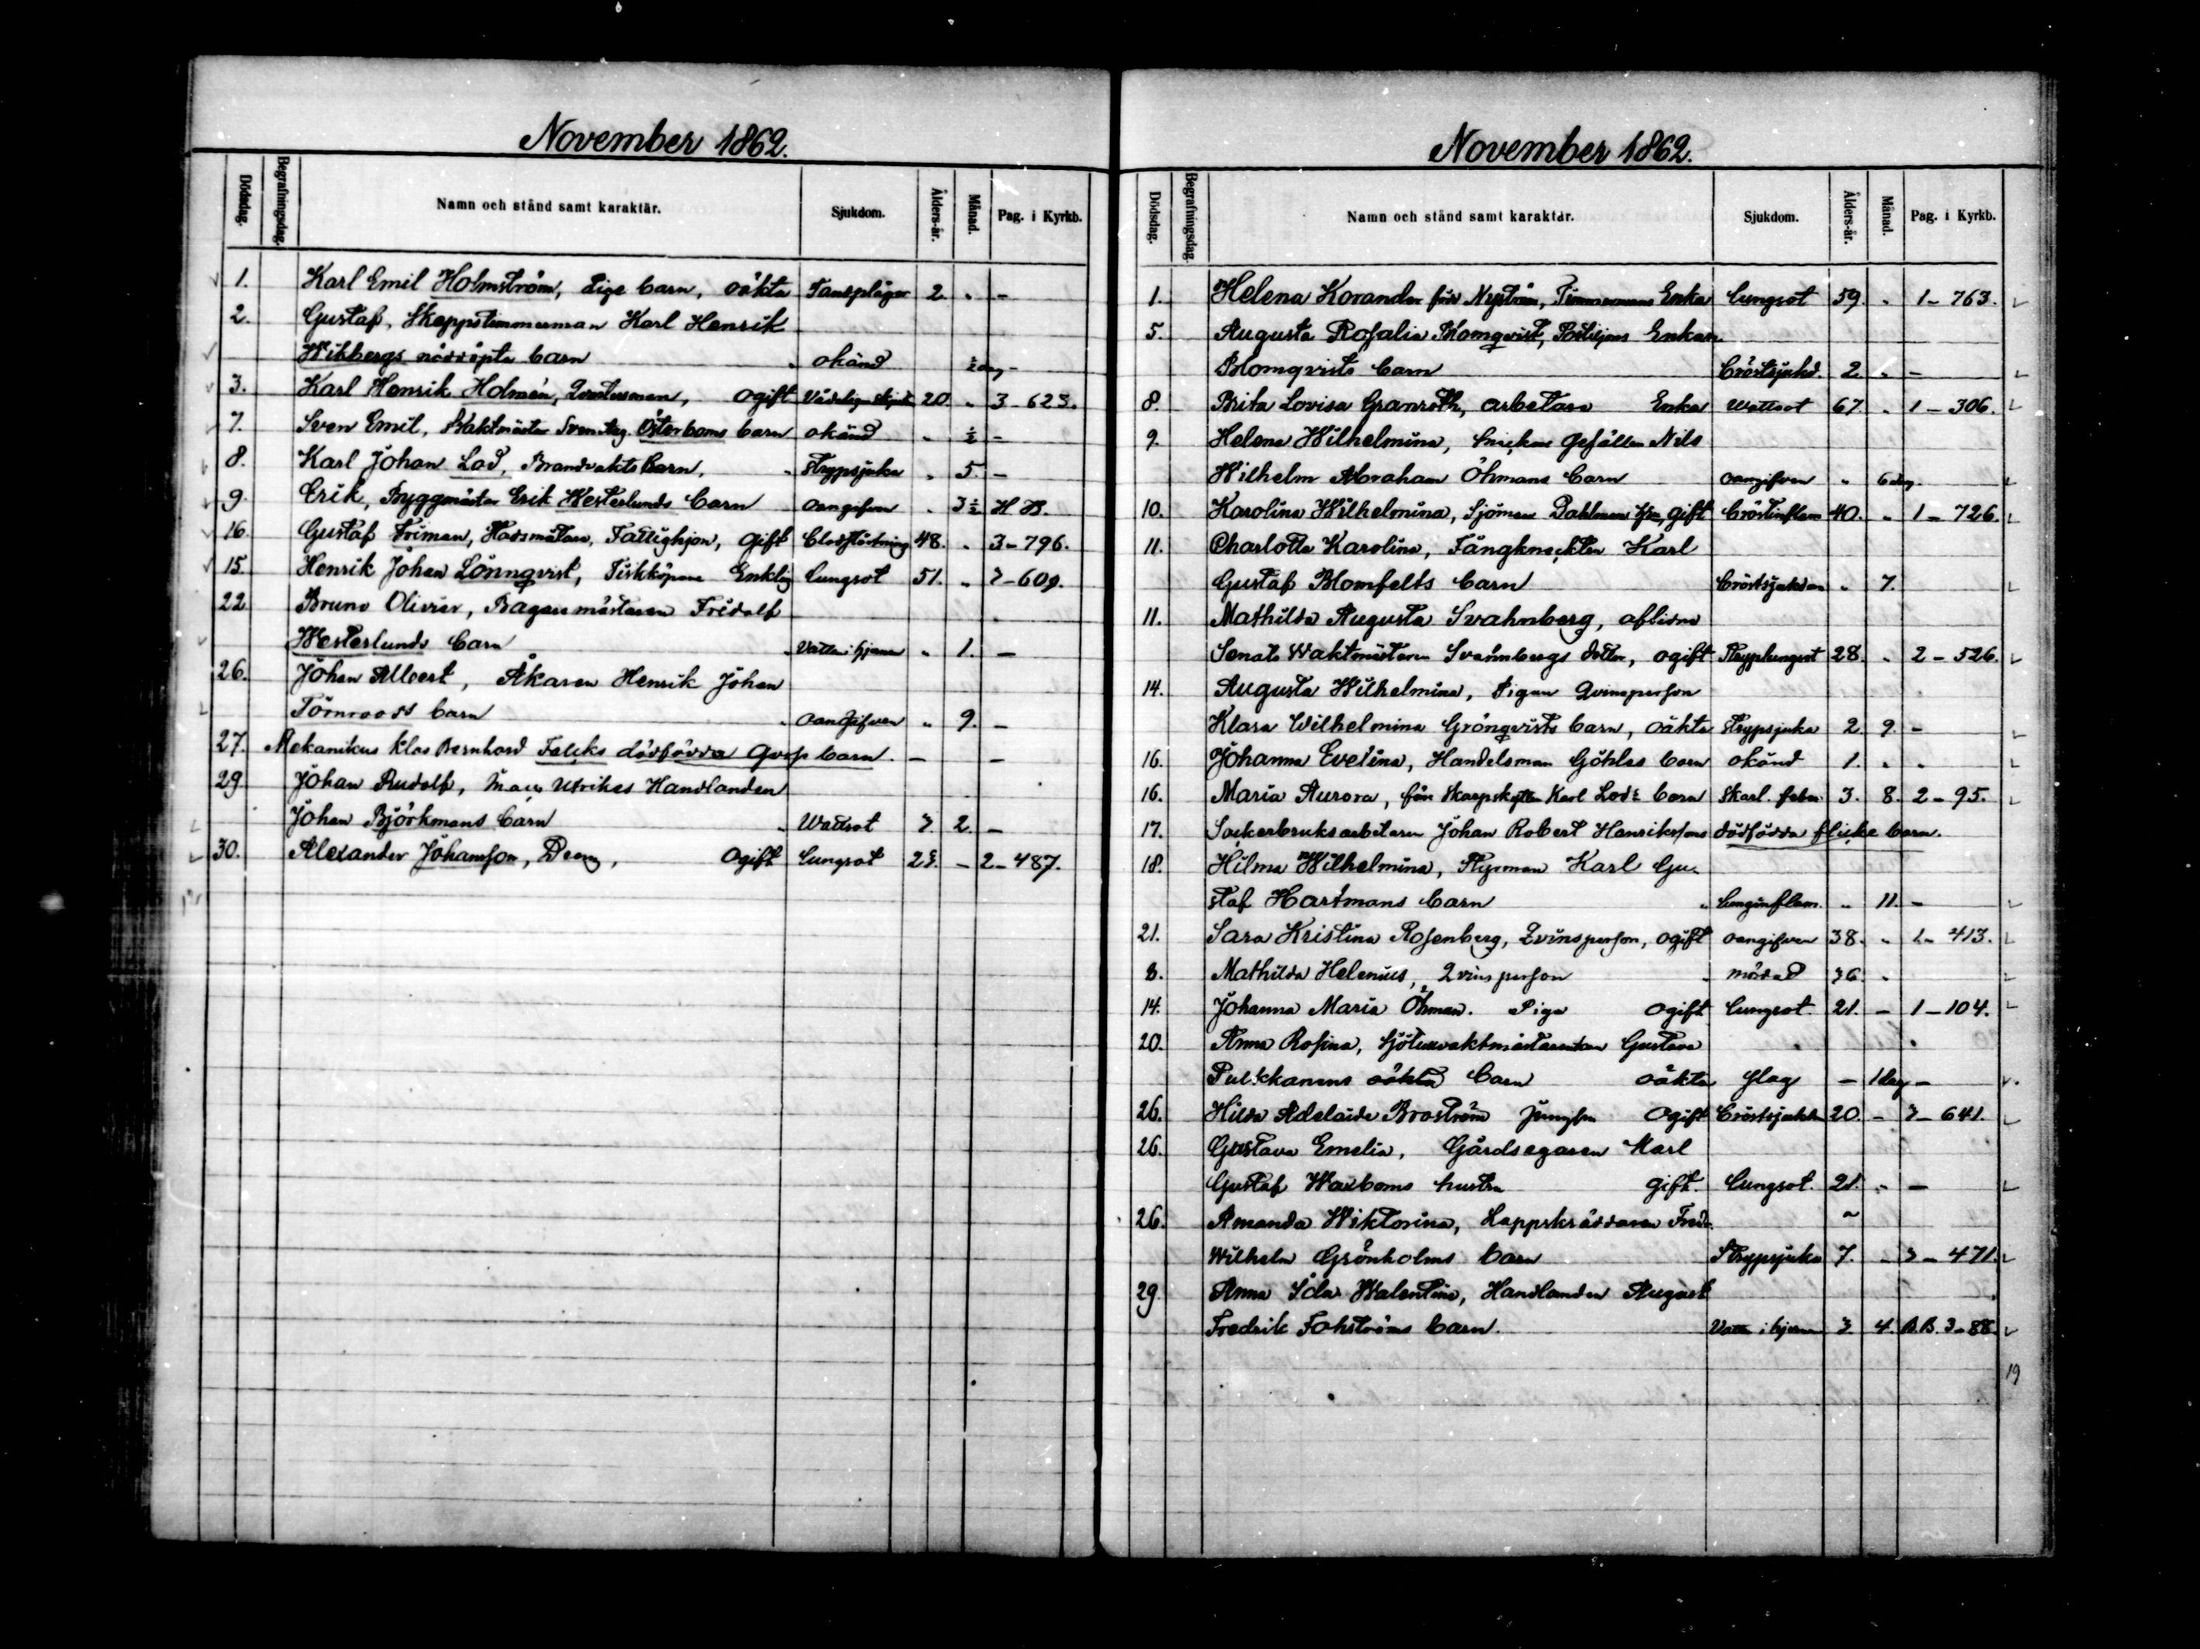 November 1862.
Dödsdag. Begrafningsdag. Namn och stånd samt karaktär. Sjukdom. Ålders-år. Månad. Pag. i Kyrkb.
1. Karl Emil Holmström, Pige barn, oäkta Tandplågor 2 " -
2. Gustaf, Skeppstimmerman Karl Henrik
Wikbergs nöddöpta barn " okänd ½ dag -
3. Karl Henrik Holmén, ogift Vådelig 20. " 3-623.
7. Sven Emil, Waktmästar Sven Aug. Österboms barn okänd " ½ -
8. Karl Johan Lod, Brandvakts barn, " Strypsjuka " 5. -
9. Erik, Byggmästar Erik Westerlunds barn oangifven " 3½ H B.
16. Gustaf Friman, Fattighjon, gift Blodstörtning 48. " 3-796.
15. Henrik Johan Lönnqvist, Fiskköpare Enkling Lungsot 51. " 3-609.
22. Bruno Olivier, Bagaremästaren Fridolf
Westerlunds barn " Vatten i hjernan " 1. -
26. Johan Albert, Åkaren Henrik Johan
Törnroos barn " oangifven " 9. -
27. Mekanikus Klas Bernhard Falcks dödfödda barn. - -
29. Johan Rudolf, Utrikes Handlanden
Johan Björkmans barn " Wådsot 3 2 -
30. Alexander Johansson, Dreng, ogift Lungsot 25. - 2-487.
November 1862.
Dödsdag. Begrafningsdag. Namn och stånd samt karaktär. Sjukdom. Ålders-år. Månad. Pag. i Kyrkb.
1. Helena Korander född Nyström, Timmermans Enka Lungsot 59. " 1-763.
5. Augusta Rosalia Blomqvist, Postiljons Enkan
Blomqvists barn Bröstsjukd. 2. " -
8. Brita Lovisa Granroth, arbetare Enka Wattsot 67 " 1-306.
9. Helena Wilhelmina, Snickare Gesällen Nils
Wilhelm Abraham Öhmans barn oangifven " 6 dag.
10. Karolina Wilhelmina, Sjöman Dahlman gift Bröstinflam 40. " 1-726.
11. Charlotta Karolina, Fångknekten Karl
Gustaf Blomfelts barn Bröstsjukdom " 7.
11. Mathilda Augusta Svahnberg, aflidne
Senats Waktmästaren Svahnbergs dotter, ogift Stryplungsot 28. " 2-526.
14. Augusta Wilhelmina, Pigan Qvinsperson
Klara Wilhelmina Grönqvists barn, oäkta Strypsjuka 2. 9. -
16. Johanna Evelina, Handelsman Göhles barn okänd 1. " "
16. Maria Aurora, förr Skarpskytten Karl Lods barn Skarl. feber 3. 8. 2-95.
17. Sockerbruksarbetaren Johan Robert Henrikssons dödfödda flicke barn.
18. Hilma Wilhelmina, Styrman Karl Gu-
staf Hartmans barn " Lunginflam. " 11. -
21. Sara Kristina Rosenberg, Qvinsperson, ogift oangifven 38. " 1-413.
8. Mathilda Helenius, Qvinsperson " mördad 36. "
14. Johanna Maria Öhman. Piga ogift Lungsot. 21. - 1-104.
20. Anna Rosina, Gustava
Pulkkanens oäkta barn oäkta slag - 1 dag -
26. Hilda Adelaide Broström Jungfru ogift Bröstsjukdom 20. - 3-641.
26. Gustava Emelia, Gårdsegaren Karl
Gustaf Waxboms hustru gift. Lungsot. 21. " -
26. Amanda Wiktorina, Fredr.
Wilhelm Grönholms barn Strypsjuka 7. " 3-471.
29. Anna Ida Walentina, Handlanden August
Fredrik Fohströms barn. Vatten i hjernan 3. 4. B.B. 3-88.
19